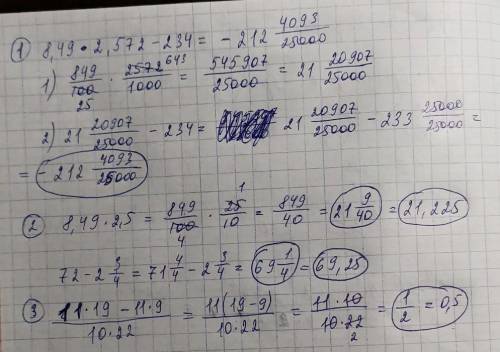 ① 8,49 · 2,572 - 234 = - 212 4093/25000
1) 849/100 25 · 2572 643/1000 = 545907/25000 = 21 20907/25000
2) 21 20907/25000 - 234 = 21 20907/25000 - 233 25000/25000 =
= - 212 4093/25000
② 8,49 · 2,5 = 849/100 4 · 25 1/10 = 849/40 = 21 9/40 = 21,225
72 - 2 3/4 = 71 4/4 - 2 3/4 = 69 1/4 = 69,25
③ 11 · 19 - 11 · 9/10 · 22 = 11(19 - 9)/10 · 22 = 11 · 10/10 · 22 2 = 1/2 = 0,5